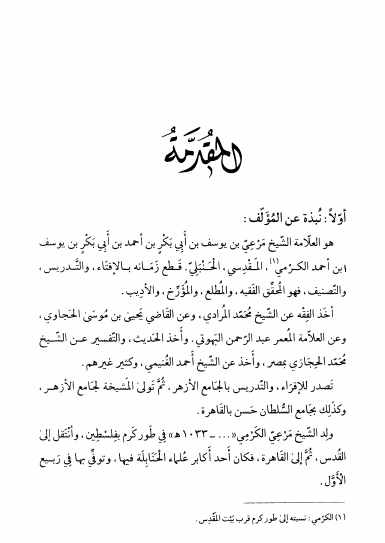 المُقدَّمَةُ
أوّلاً : نُبذة عن المُؤَلّف :
هو العلاّمة الشّيخ مَرْعِيّ بن يوسف بن أَبي بَكْرٍ بن أحمد بن أَبي بَكْرٍ بن يوسف
بن أحمد الكرْمي(١)، المَقْدِسي، الحَنْبَليّ. قَطع زَمَانه بالإفتَاء، والتَّدريس،
والتّصنيف، فهو المُحقّق الفَقيه، والمُطلع، والمُؤَرِّخ، والأديب.
أخَذ الفِقْه عن الشّيخ مُحمّد المُرادي، وعن القَاضي يَحيىٰ بن مُوسَىٰ الحَجاوي،
وعن العلاّمة المُعمر عبد الرّحمن البَهوتي. وأخَذ الحَديث، والتّفسير عن الشّيخ
مُحمّد الحِجَازي بمصر، وأخَذ عن الشّيخ أحمد الغُنيمي، وكثير غيرهم.
تَصدر للإقرَاء، والتّدريس بالجَامع الأزهر، ثُمَّ تَولىٰ المَشيخة لجَامع الأزهر،
وكذٰلِك بجَامع السُّلطان حَسن بالقَاهرة.
ولد الشّيخ مَرْعيّ الكَرْمِي «... ـ ١٠٣٣ هـ» في طُوركَرم بفِلسْطِين، وأنْتَقل إلىٰ
القُدس، ثُمَّ إلىٰ القَاهرة، فكَان أحَد أكَابر عُلماء الحَنَابِلَة فيهَا، وتوفِّي بهَا في رَبيع
الأوّل.
(١) الكرْمي: نسبته إلىٰ طور كرم قرب بَيْت المقْدِس.